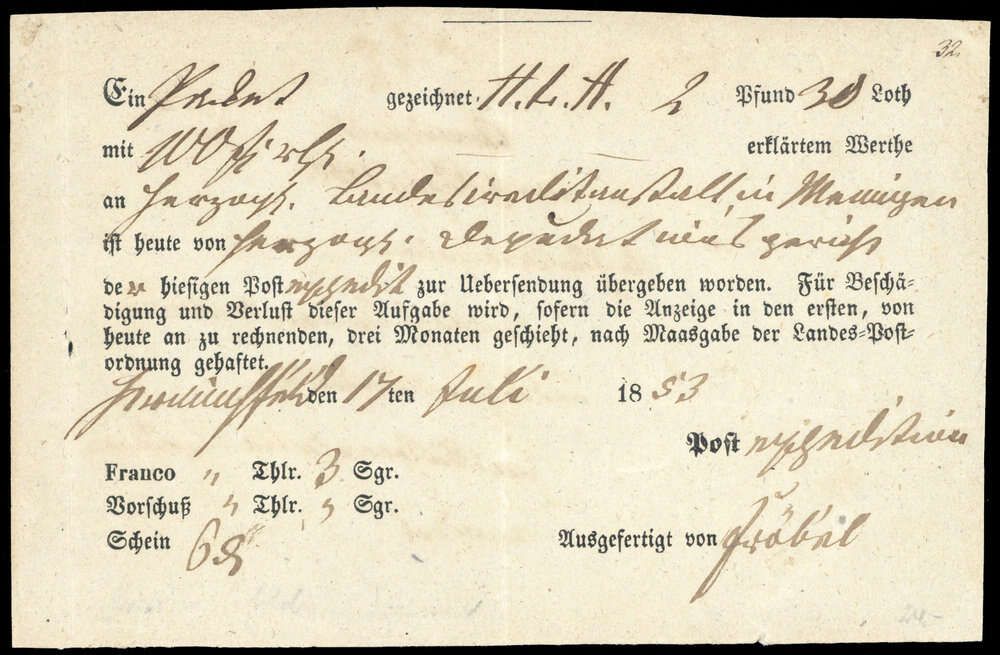 32.
Ein Packet gezeichnet H. L. A. 2 Pfund 30 Loth
mit 100 erklärtem Werthe
an Herzogl. Landescreditanstalt in Meiningen
ist heute von Herzogl.
der hiesigen Postexpedit zur Uebersendung übergeben worden. Für Beschä-
digung und Verlust dieser Aufgabe wird, sofern die Anzeige in den ersten, von
heute an zu rechnenden, drei Monaten geschieht, nach Maasgabe der Landes-Post-
ordnung gehaftet.
den 17ten Juli 1853
Postexpedition
Franco " Thlr. 3 Sgr.
Vorschuß " Thlr. " Sgr.
Schein 6 Ausgefertigt von Fröbel